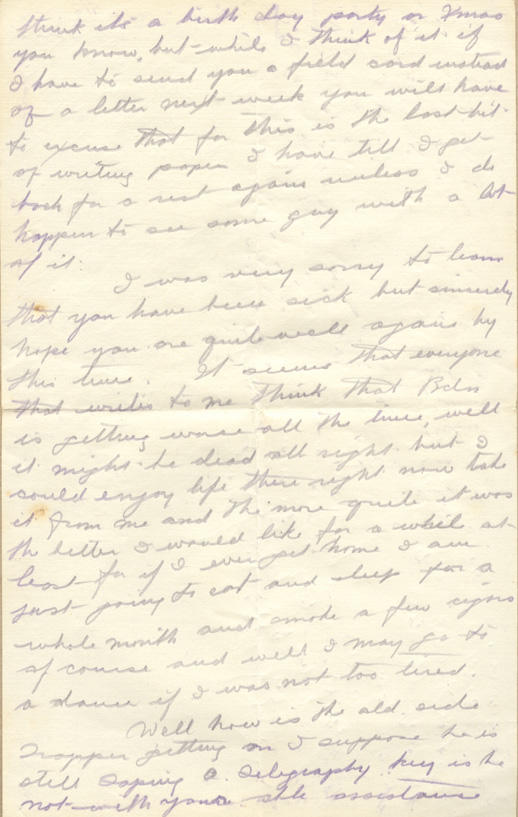 think its a birth day party or Xmas
you know, but while I think of it if
I have to send you a field card instead
of a letter next week you will have
to excuse that for this is the last bit
of writing paper I have till I get
back for a rest again unless I do
happen to see some guy with a lot
of it.
I was very sorry to learn
that you have been sick but sincerely
hope you are quite well again by
this time. It seems that everyone
that writes to me think that Bdn
is getting worse all the time, well
it might be dead all right but I
could enjoy life there right now take
it from me and the more quite it was
the better I would like for a while at
least for if I ever get home I am
just going to eat and sleep for a
whole month and smoke a few cigars
of course and well I may go to
a dance if I was not too tired.
Well how is the old side
getting on I suppose he is
still a telegraphy key is he
not with your able assistance